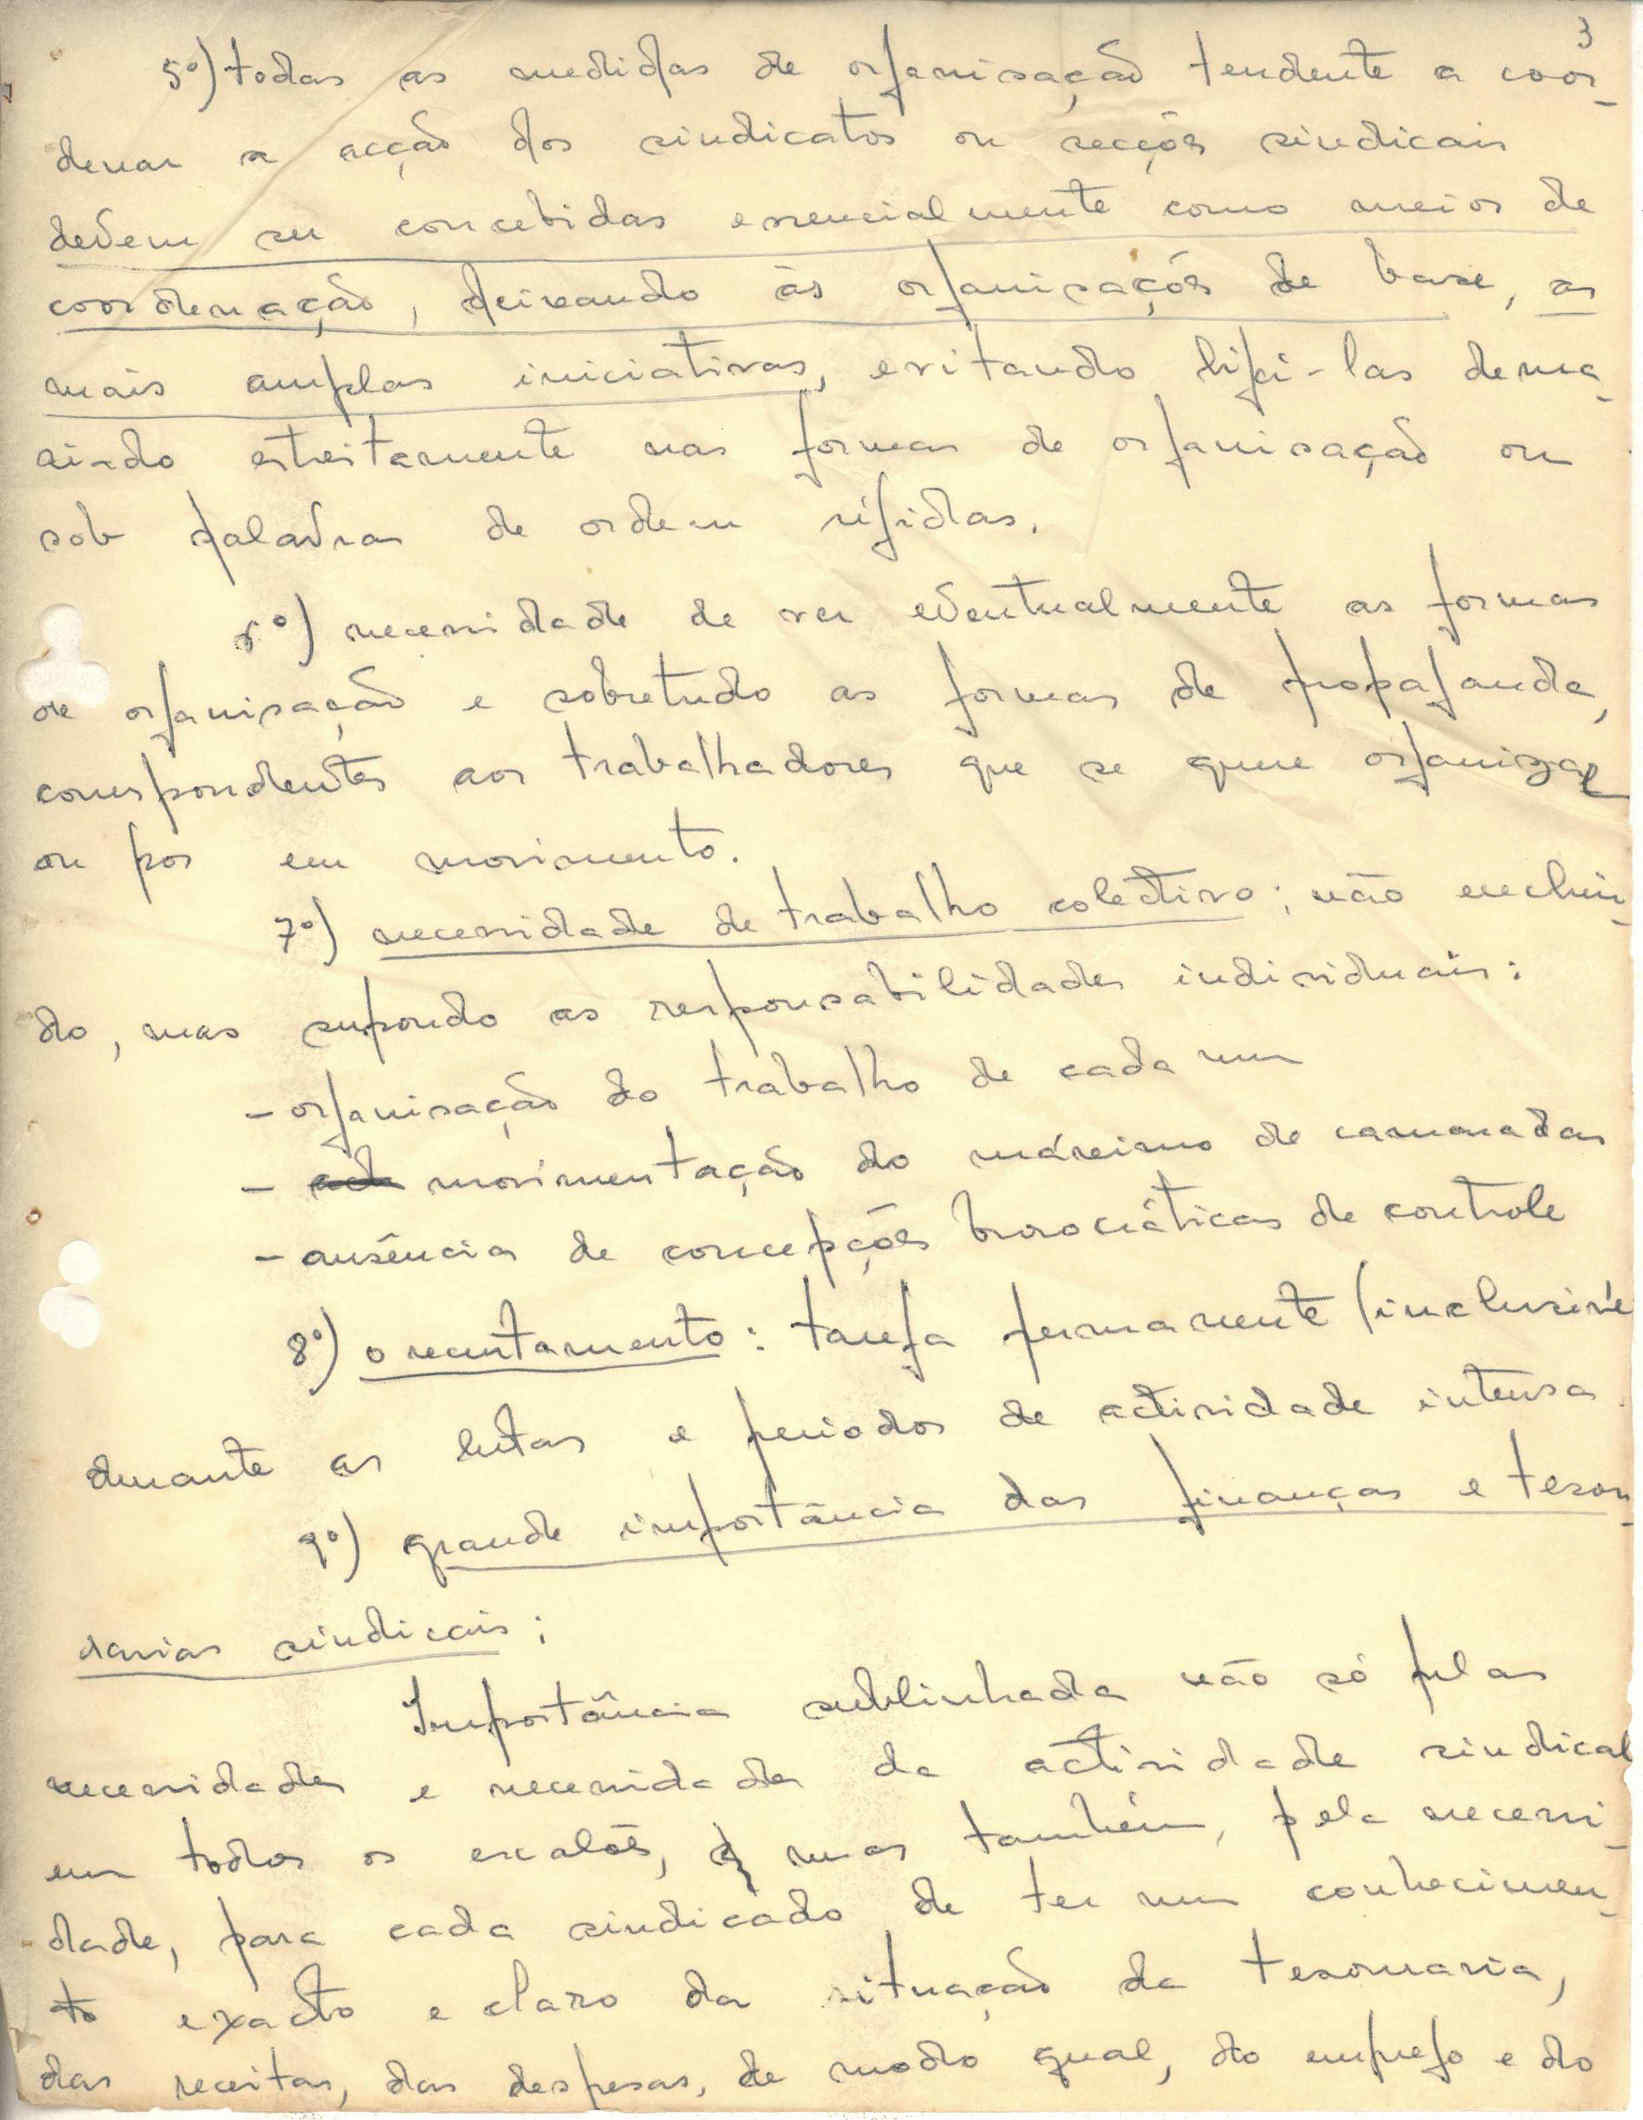 3
5º) todas as medidas de organisação tendente a coor-
denar a acção dos sindicatos ou secções sindicais
devem ser concebidas essencialmente como meios de
coordenação, deixando às organisações de base, as
mais amplas iniciativas, evitando ligá-las dema-
siado estreitamente nas formas de organisação ou
sob palavras de ordem rígidas.
6º) necessidade de ver eventualmente as formas
de organisação e sobretudo as formas de propaganda,
correspondentes aos trabalhadores que se quere organizar
ou pôr em movimento.
7º) necessidade de trabalho colectivo; não excluin-
do, mas supondo as responsabilidades individuais:
- organisação do trabalho de cada um
- movimentação do máximo de camaradas
- ausência de concepções burocráticas de controle
8º) o recrutamento: tarefa permanente (inclusivé
durante as lutas e periodos de actividade intensa
9º) grande importância das finanças e tesou-
rarias sindicais;
Importância sublinhada não só pelas
necessidades e necessidades da actividade sindical
em todos os escalões, mas também, pela necessi-
dade, para cada sindicado de ter um conhecimen-
to exacto e claro da situação da tesouraria,
das receitas, das despesas, de modo igual, do emprego e do